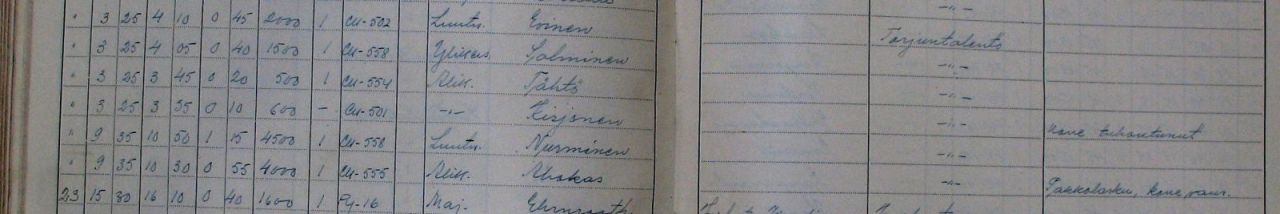 " 3 25 4 10 0 45 2000 1 CU-502 Luutn. Eninen -"-
" 3 25 4 05 0 40 1500 1 CU-558 Ylikers. Salminen Torjuntalento
" 3 25 3 45 0 20 500 1 CU-554 Alik. Tähtö -"-
" 3 25 3 35 0 10 600 - CU-501 -"- Kirjonen -"-
" 9 35 10 50 1 15 4500 1 CU-558 Luutn. Nurminen -"- Kone tuhoutunut
" 9 35 10 30 0 55 4000 1 CU-555 Alik. Ahokas -"-
23 15 30 16 10 0 40 1600 1 Py-16 Maj. Ehrnrooth -"- Pakkolasku, kone vaur.